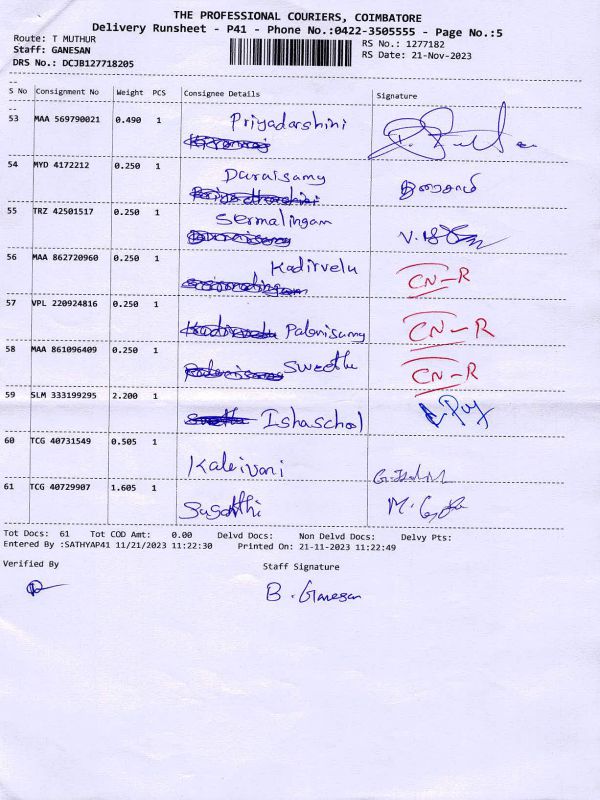 THE PROFESSIONAL COURIERS, COIMBATORE
Delivery Runsheet - P41 - Phone No.:0422-3505555 - Page No.:5
Route: T MUTHUR
RS No.: 1277182
Staff: GANESAN
RS Date: 21-Nov-2023
DRS No.: DCJB127718205
S No Consignment No Weight PCS Consignee Details Signature
53 MAA 569790021 0.490 1 Priyadarshini
54 MYD 4172212 0.250 1 Duraisamy துரைசாமி
55 TRZ 42501517 0.250 1 Sermalingam
56 MAA 862720960 0.250 1 Kadirvelu CN-R
57 VPL 220924816 0.250 1 Palanisamy CN-R
58 MAA 861096409 0.250 1 Swetha CN-R
59 SLM 333199295 2.200 1 Ishaschool
60 TCG 40731549 0.505 1 Kaleivani
61 TCG 40729907 1.605 1 Suganthi
Tot Docs: 61 Tot COD Amt: 0.00 Delvd Docs: Non Delvd Docs: Delvy Pts:
Entered By :SATHYAP41 11/21/2023 11:22:30 Printed On: 21-11-2023 11:22:49
Verified By Staff Signature
B. Ganesan